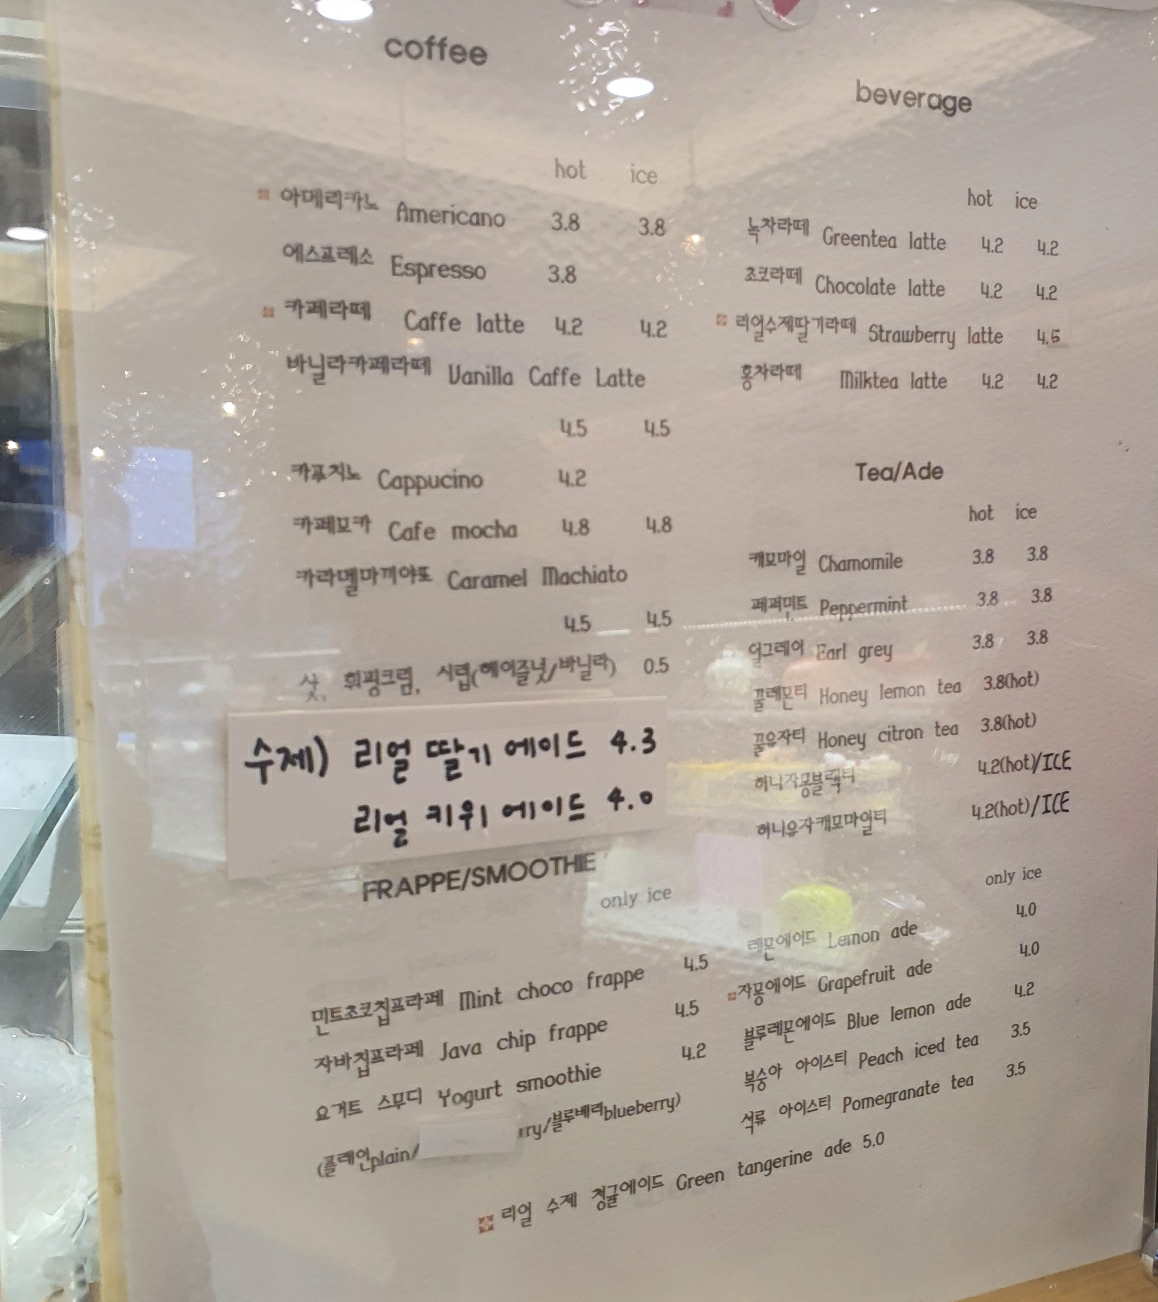 coffee
hot ice
아메리카노 Americano 3.8 3.8
에스프레소 Espresso 3.8
카페라떼 Caffe latte 4.2 4.2
바닐라카페라떼 Vanilla Caffe Latte
4.5 4.5
카푸치노 Cappucino 4.2
카페모카 Cafe mocha 4.8 4.8
카라멜마끼야또 Caramel Machiato
4.5 4.5
샷, 휘핑크림, 시럽(헤이즐넛/바닐라) 0.5
수제) 리얼 딸기 에이드 4.3
리얼 키위 에이드 4.0
FRAPPE/SMOOTHIE
only ice
민트초코칩프라페 Mint choco frappe 4.5
자바칩프라페 Java chip frappe 4.5
요거트 스무디 Yogurt smoothie 4.2
(플레인plain/ rry/블루베리blueberry)
beverage
hot ice
녹차라떼 Greentea latte 4.2 4.2
초코라떼 Chocolate latte 4.2 4.2
리얼수제딸기라떼 Strawberry latte 4.5
홍차라떼 Milktea latte 4.2 4.2
Tea/Ade
hot ice
캐모마일 Chamomile 3.8 3.8
페퍼민트 Peppermint 3.8 3.8
얼그레이 Earl grey 3.8 3.8
꿀레몬티 Honey lemon tea 3.8(hot)
꿀유자티 Honey citron tea 3.8(hot)
허니자몽블랙티 4.2(hot)/ICE
허니유자캐모마일티 4.2(hot)/ICE
only ice
레몬에이드 Lemon ade 4.0
자몽에이드 Grapefruit ade 4.0
블루레몬에이드 Blue lemon ade 4.2
복숭아 아이스티 Peach iced tea 3.5
석류 아이스티 Pomegranate tea 3.5
리얼 수제 청귤에이드 Green tangerine ade 5.0